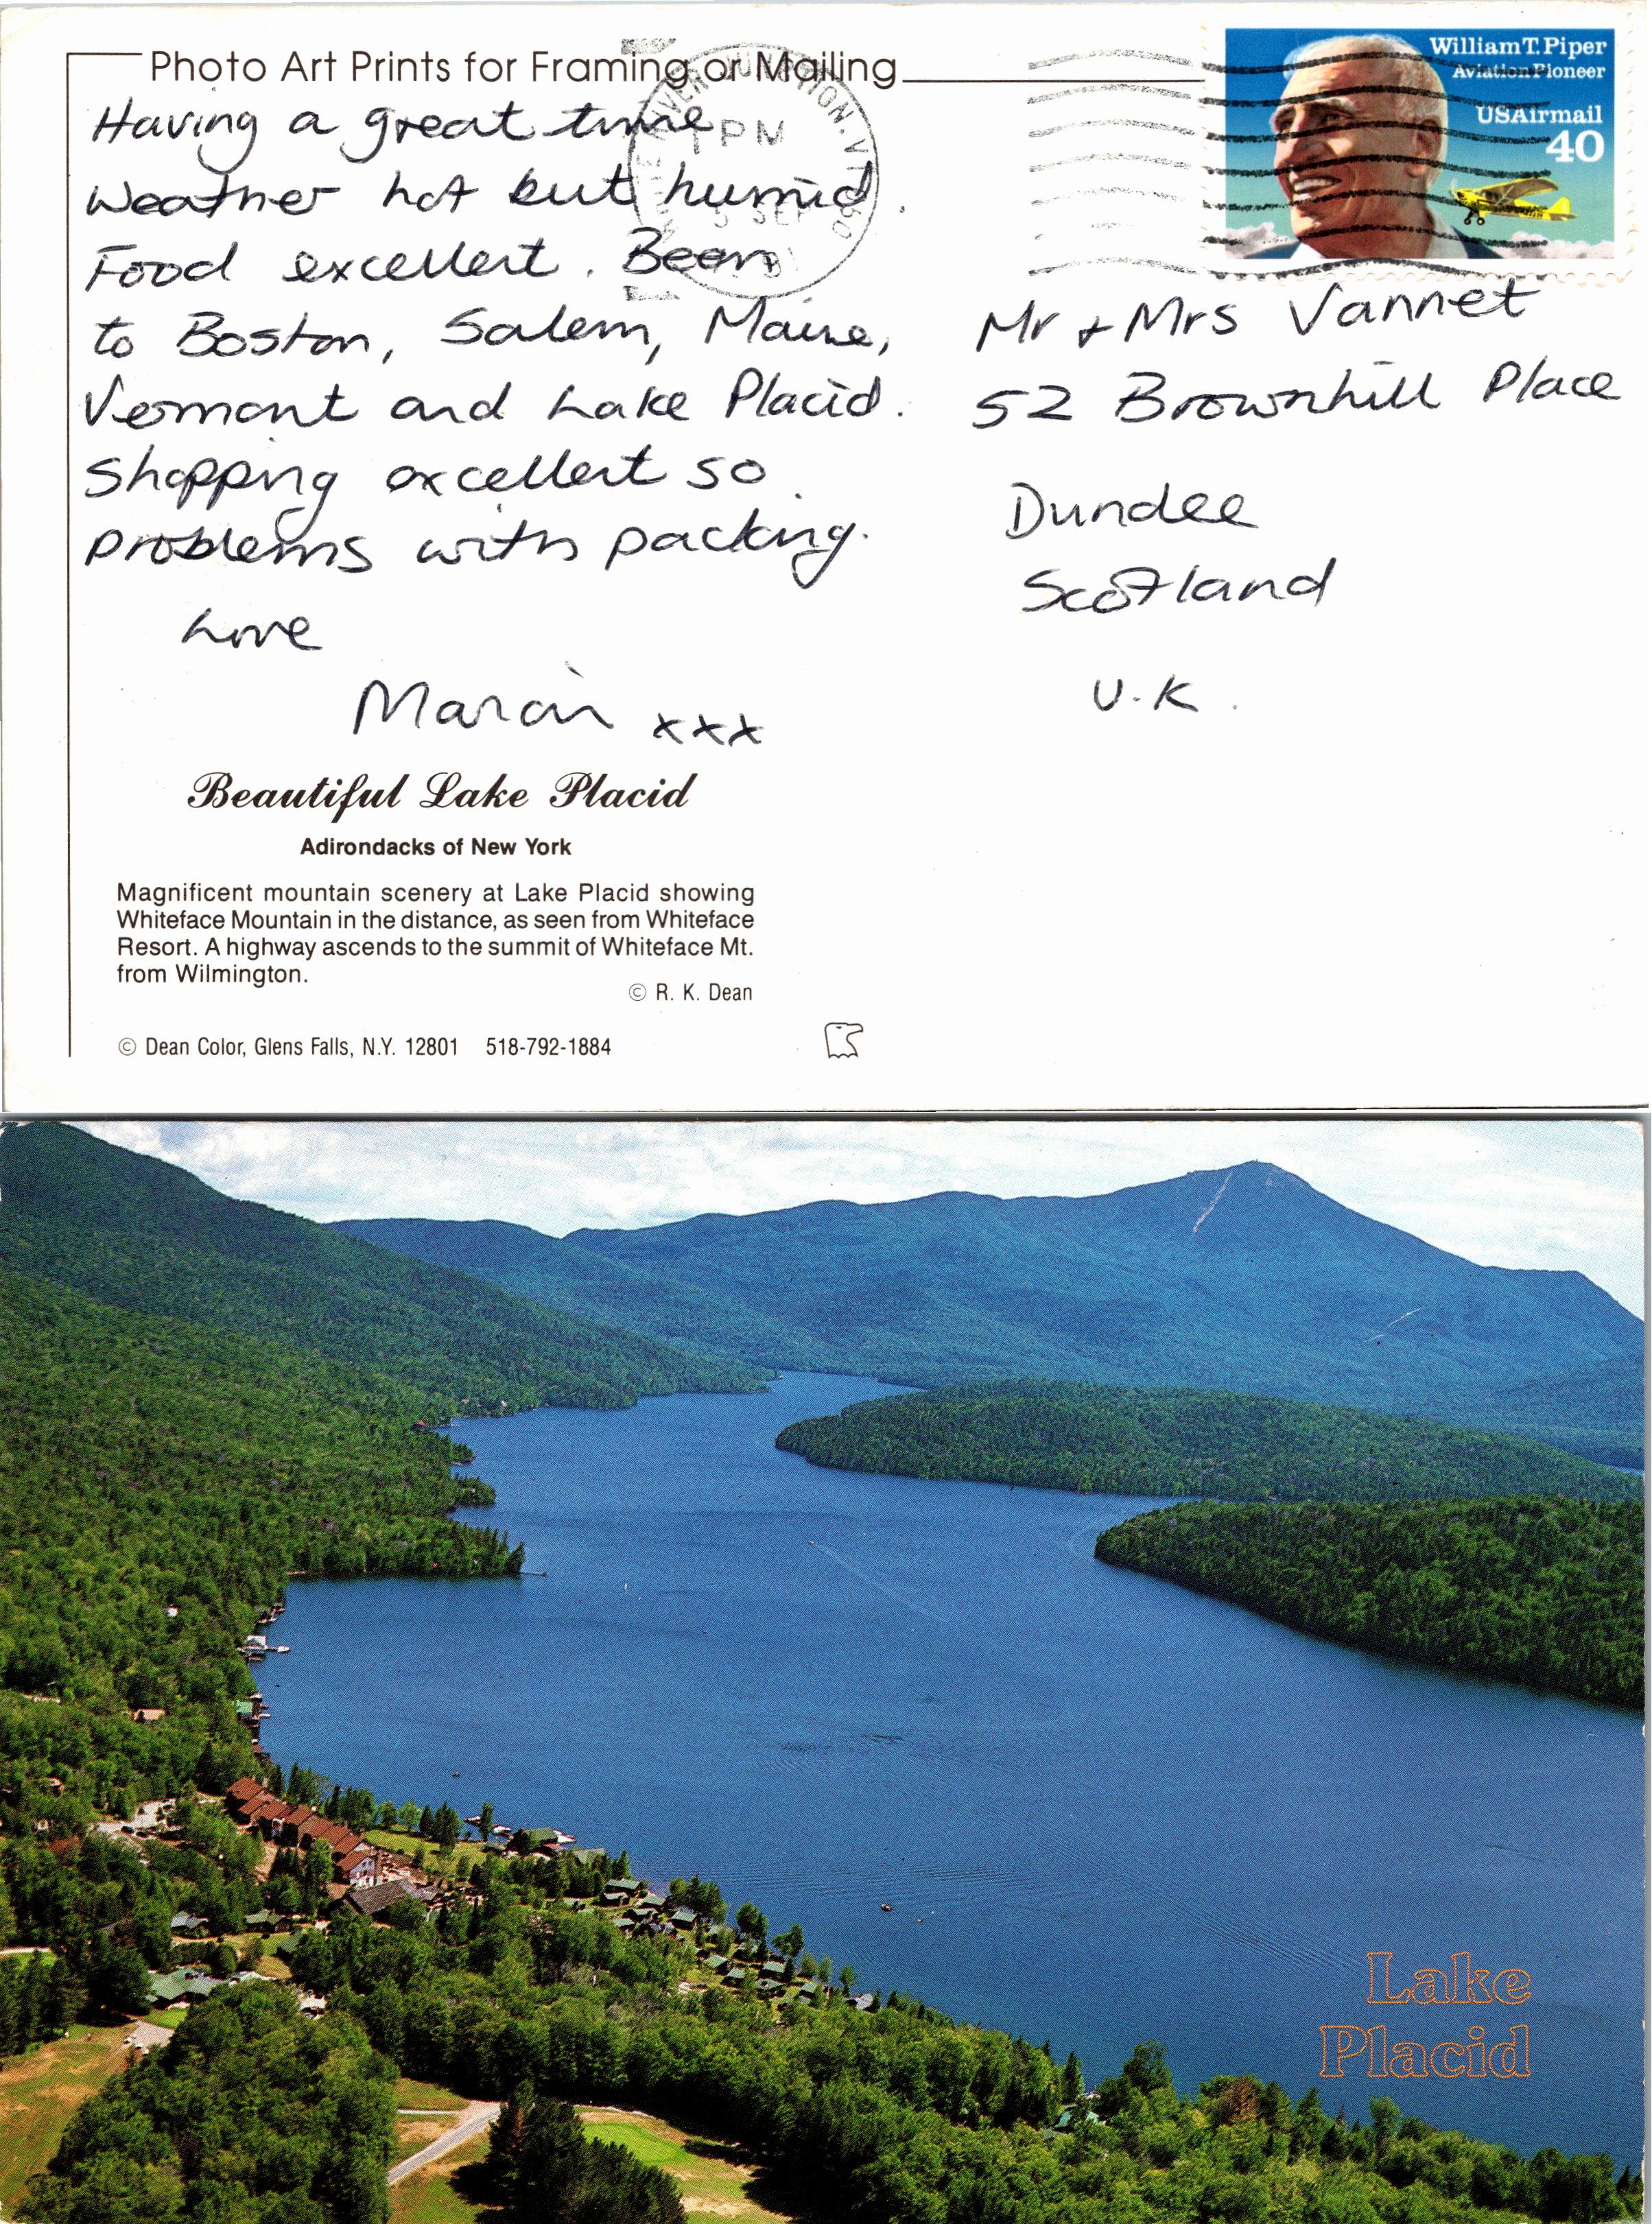 Photo Art Prints for Framing or Mailing
Having a great time
Weather hot but humid.
Food excellent. Been
to Boston, Salem, Maine,
Vermont and Lake Placid.
Shopping excellent so
problems with packing.
Love
xxx
Beautiful Lake Placid
Adirondacks of New York
Magnificent mountain scenery at Lake Placid showing
Whiteface Mountain in the distance, as seen from Whiteface
Resort. A highway ascends to the summit of Whiteface Mt.
from Wilmington.
© R. K. Dean
© Dean Color, Glens Falls, N.Y. 12801 518-792-1884
JUNCTION. VT
PM
5 SEP
William T. Piper
Aviation Pioneer
USAirmail
40
Mr + Mrs Vannet
52 Brownhill Place
Dundee
Scotland
U.K.
Lake
Placid